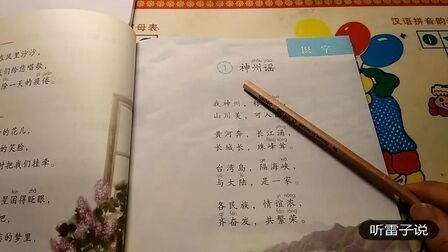 在风里沙沙,
们给您唱歌,
除一天的疲倦。
的花儿,
的笑脸,
时把我们挂牵。
zhǎ
星困得眨眼,
吧!
的梦里,
母表
汉语拼音韵
识字
zhōu yáo
① 神州谣
我神州,称
山川美,可入
yǒng
黄河奔,长江涌,
长城长,珠峰耸。
gé xiá
台湾岛,隔海峡,
与大陆,是一家。
yì nóng
各民族,情谊浓,
fèn róng
齐奋发,共繁荣。
听雷子说